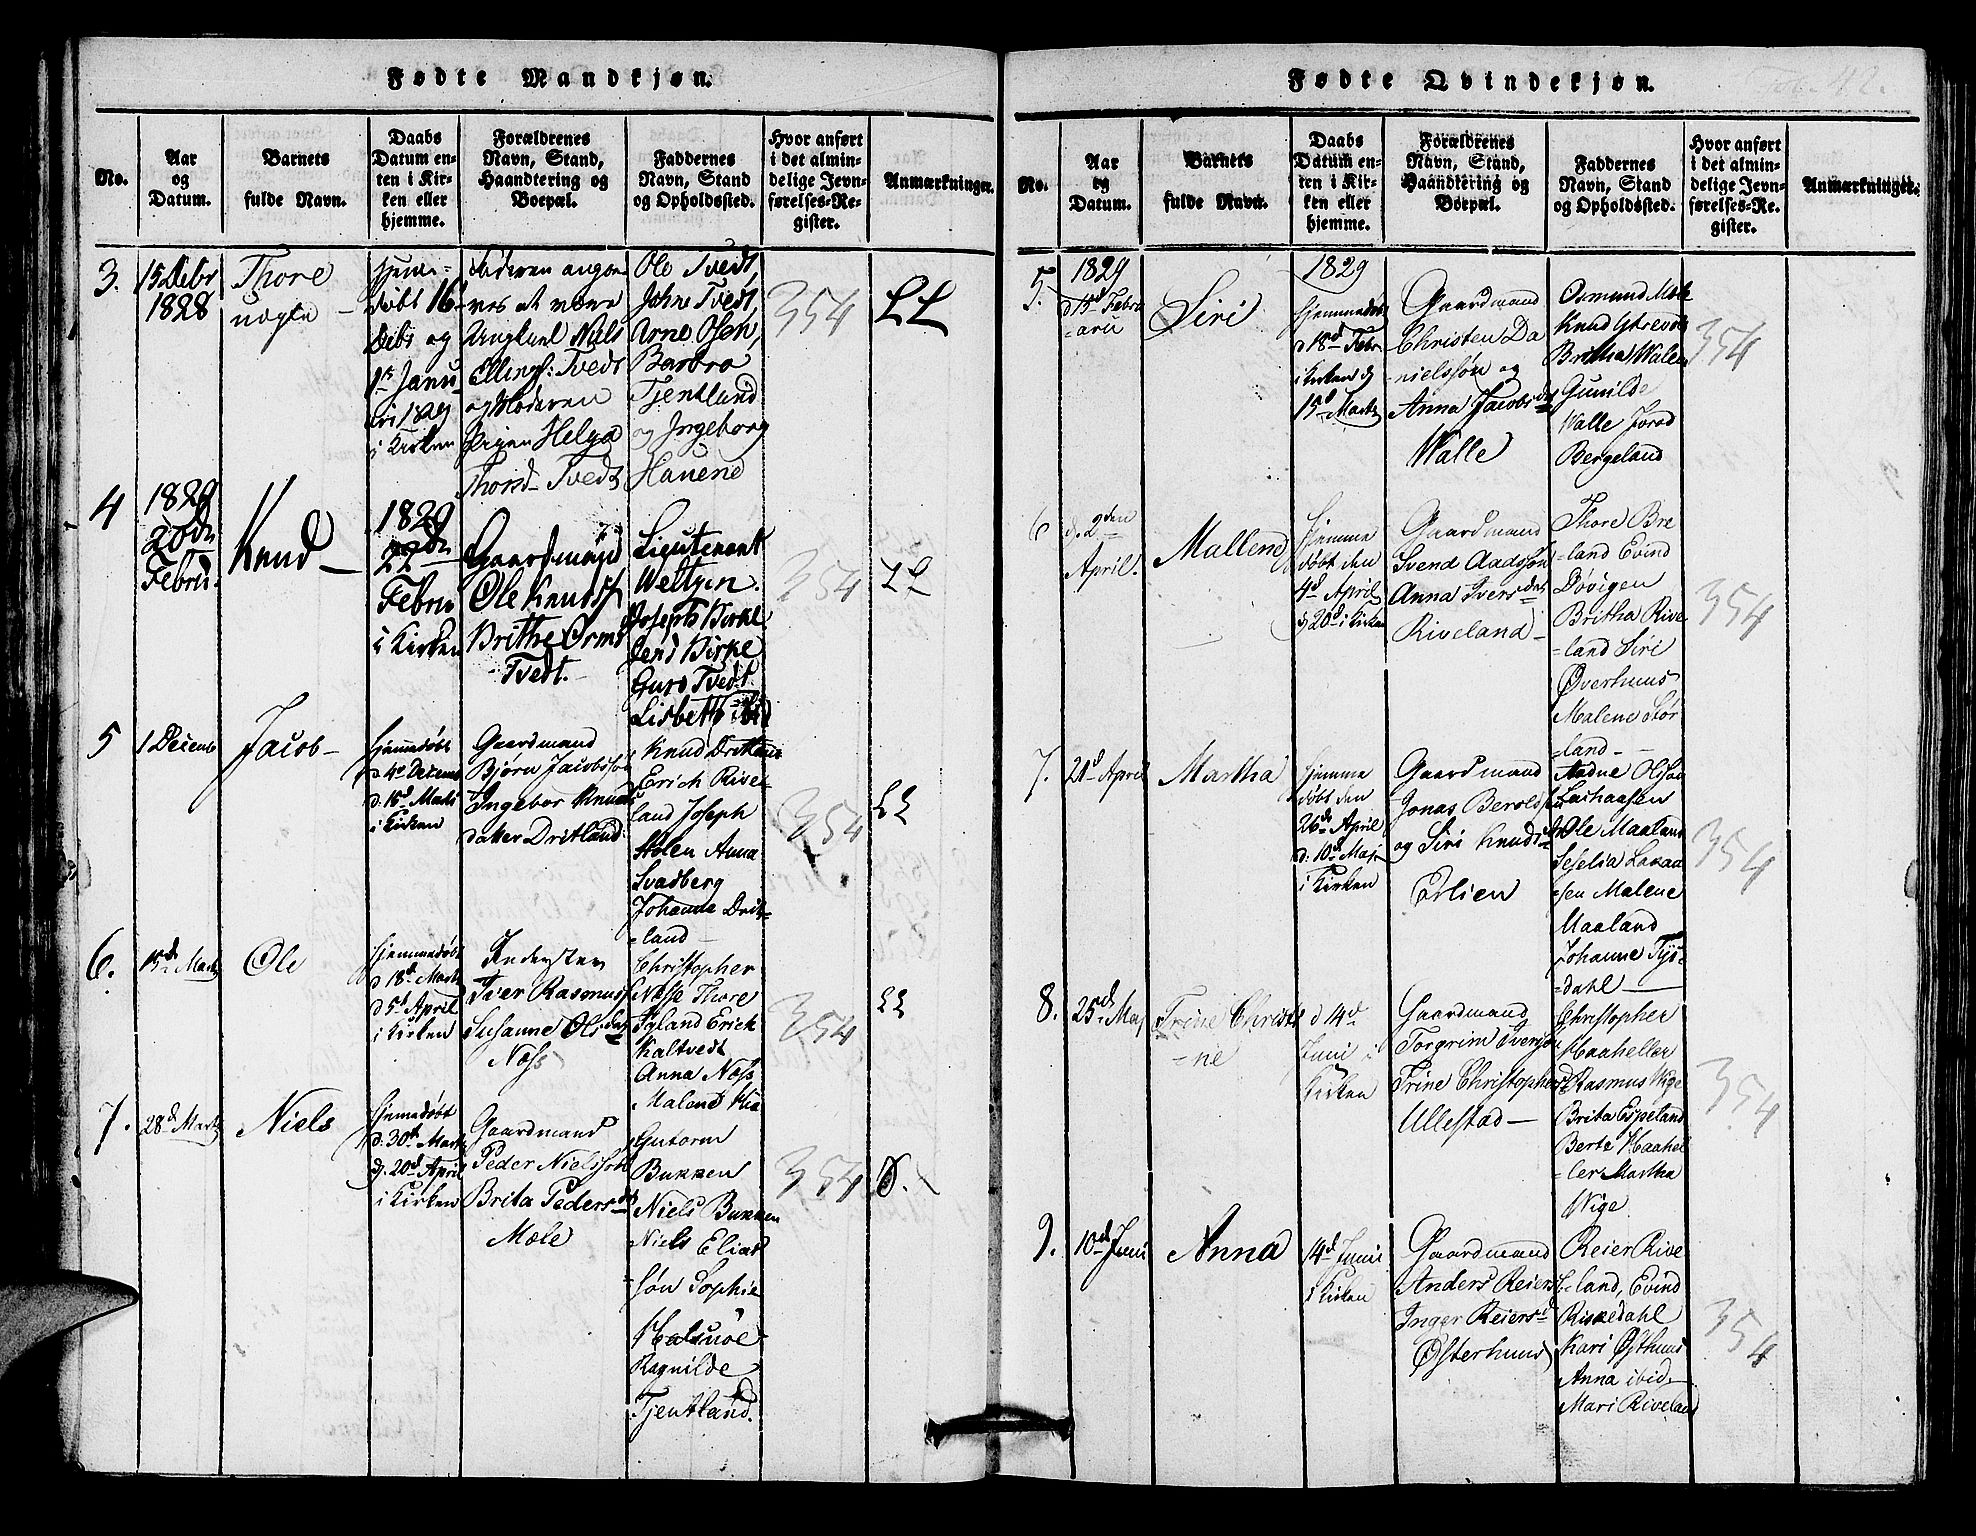 Fødte Mandkjøn.
No.
Aar
og
Datum.
Barnets
fulde Navn.
Daabs
Datum en-
ten i Kir-
ken eller
hjemme.
Forældrenes
Navn, Stand,
Haandtering og
Boepæl.
Faddernes
Navn, Stand
og Opholdssted.
Hvor anført
i det almin-
delige Jevn-
førelses-Re-
gister.
Anmærkninger.
3.
15 Debr
1828
Thore
uægte
hjemme-
døbt 16
Debr og
1ste Janu
ari 1829
i Kirken
Faderen angi-
ves at være
Ungkarl Niels
Ellings: Tvedt
og Moderen
Pigen Helga
Thorsd Tvedt
Ole Tvedt,
Johne Tvedt,
Arne Osen,
Barbro
Tjentland
og Ingeborg
Hauene
354
LL
4
1829
20de
Febru.
Knud
1829
22de
Febru
i Kirken
Gaardmand
Ole Knuds
Brithe Orms
Tvedt.
Lieutenant
Weltzen.
Joseph Birkel.
Jend Birke
Guro Tvedt
Lisbeth ibid
354
LL
5
1 Decemb
Jacob
hjemmedøbt
d 4d Decemb
d. 15d Marts
i Kirken
Gaardmand
Bjørn Jacobsson
Ingebor Knuds
datter Dritland
Knud Dritland
Erich Rive-
land Joseph
Stølen Anna
Svadberg
Johanna Drit-
=land
354
LL
6.
15d Marts
Ole
hjemmedøbt
d 18d Marts
d 5d April
i Kirken
Inderster
Iver Rasmuss
Susanne Olsdat
Næss
Christopher
Næsse Thore
Fyland Erich
Kaltvedt
Anna Næss
Malene Kia
354
LL
7.
28d Marts
Niels
hjemmedøbt
d. 30d Marts
d. 20d April
i Kirken
Gaardmand
Peder Nielsson
Brita Pedersd
Mæle
Gutorm
Bukken
Niels Bukken
Niels Elias
søn Sophie
Halsnöe
Ragnilde
Tjentland.
354
D.
Fødte Qvindekjøn.
42.
No.
Aar
og
Datum.
Barnets
fulde Navn.
Daabs
Datum en-
ten i Kir-
ken eller
hjemme.
Forældrenes
Navn, Stand,
Haandtering og
Boepæl.
Faddernes
Navn, Stand
og Opholdssted.
Hvor anført
i det almin-
delige Jevn-
førelses-Re-
gister.
Anmærkninger.
5.
1829
d 15d Febru
=arii
Siri
1829
hjemmedøbt
d 18d Febr.
i Kirken d
15d Marts
Gaardmand
Christen Da
=nielssøn og
Anna Jacobsd
Walle
Osmund Mæle
Knud Ytrevold
Britha Walen
Gunilde
Walle Jorod
Bergeland
354
6
d. 2den
April.
Mallene
hjemme
døbt den
4d April
d 20d i Kirken
Gaardmand
Svend Aadsøn
Anna Iversdat
Riveland
Thore Bre
land Evind
Døvigen
Britha Rive
=land Siri
Øverhuus
Malene Stør
=land
354
7.
21d April
Martha
hjemme
døbt den
26de April
d. 10d Maj
i Kirken
Gaardmand
Jonas Beroldsen
og Siri Knudsd
Erlien
Aadne Olsson
Lashaasen
Ole Maaland
Seselia Lasaa
=sen Malene
Maaland
Johanne Tys-
=dahl
354
8.
25d Maj
Trine Christi
-ne
d 14d
Juni i
Kirken
Gaardmand
Torgrim Iversøn
Trine Christophersd
Ullestad
Christopher
Haaheller
Rasmus Wige
Brita Espeland
Berte Haahel
=ler Martha
Wige
354
9.
10d Juni
Anna
14d Juni
i Kirken
Gaardmand
Anders Reiers
Inger Reiersd
Østerhuus
Reier Rive
=land, Evind
Riskedahl
Kari Østhuus
Anna ibid
Mari Riveland
354